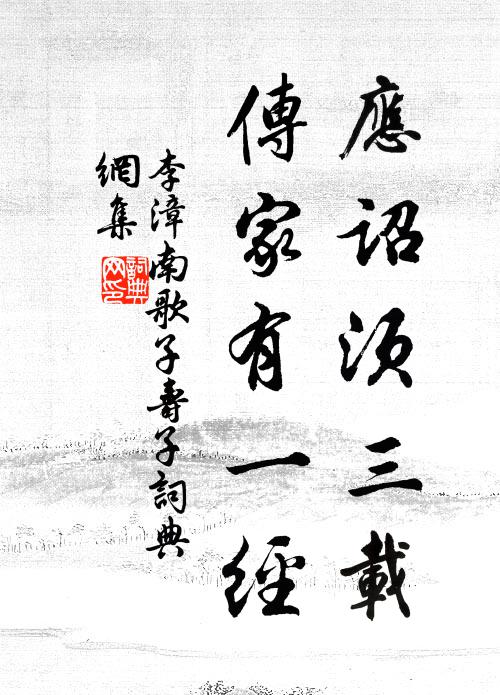 應詔須三載
傳家有一經
李漳南歌子壽子詞典
網集
詞典
网印